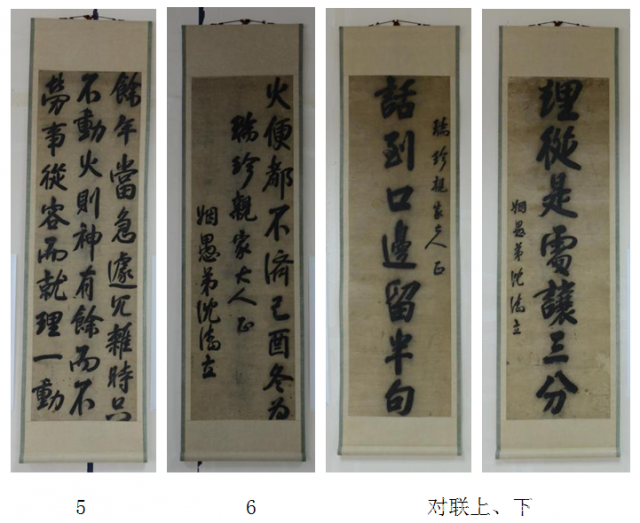 餘年當急遽冗雜時只
不動火則神有餘而不
勞事從容而就理一動
火便都不濟己酉冬為
瑞珍親家大人正
姻愚弟沈立
瑞珍親家大人正
話到口邊留半句
理從是處讓三分
姻愚弟沈立
5
6
对联上、下